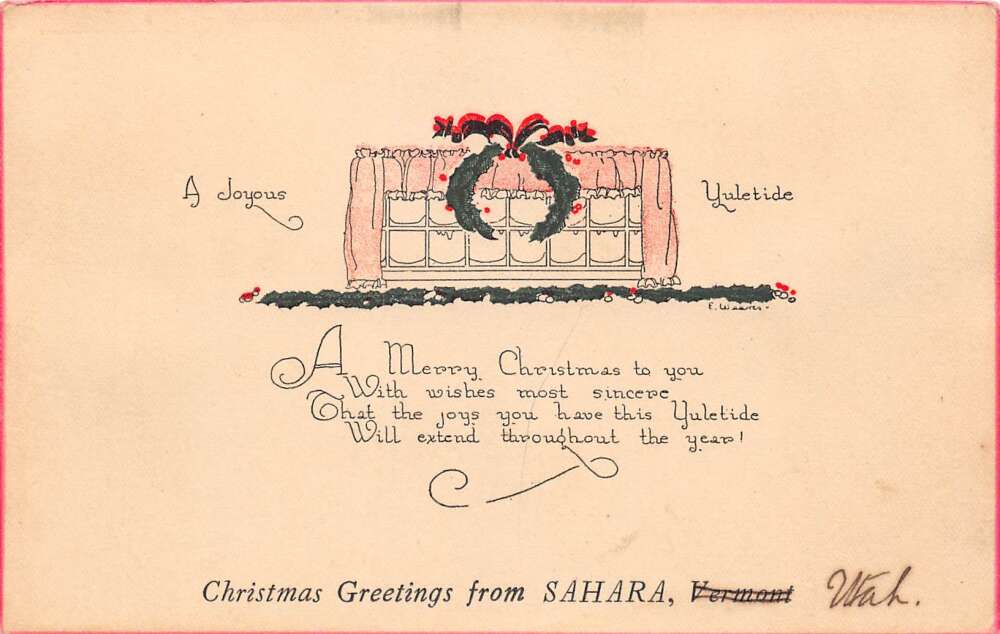 A Joyous Yuletide
E. Weaver-
A Merry Christmas to you
With wishes most sincere
That the joys you have this Yuletide
Will extend throughout the year!
Christmas Greetings from SAHARA, Vermont Utah.